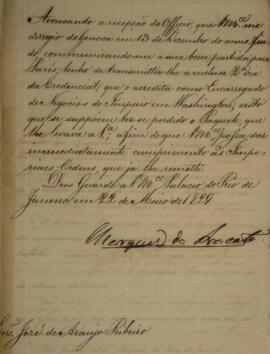 Accusando a recepção do Officio, que VM.ce me
dirigio de Genova em 13 de Dezembro do anno fin-
do, communicando-me a sua breve partida para
Paris, tenho de transmittir-lhe a inclusa 2ª via
da Credencial, que o acredita como Encarregado
de Negocios do Imperio em Washington, visto
que se suppoem ter-se perdido o Paquete, que
lhe levava a 1ª, a fim de que VM.ce possa dar
immediatamente cumprimento ás Impe-
riaes Ordens, que já lhe remetti.
Deos Guarde a VM.ce Palacio do Rio de
Janeiro em 22 de Maio de 1829
Marquez do Aracaty
José de Araujo Ribeiro